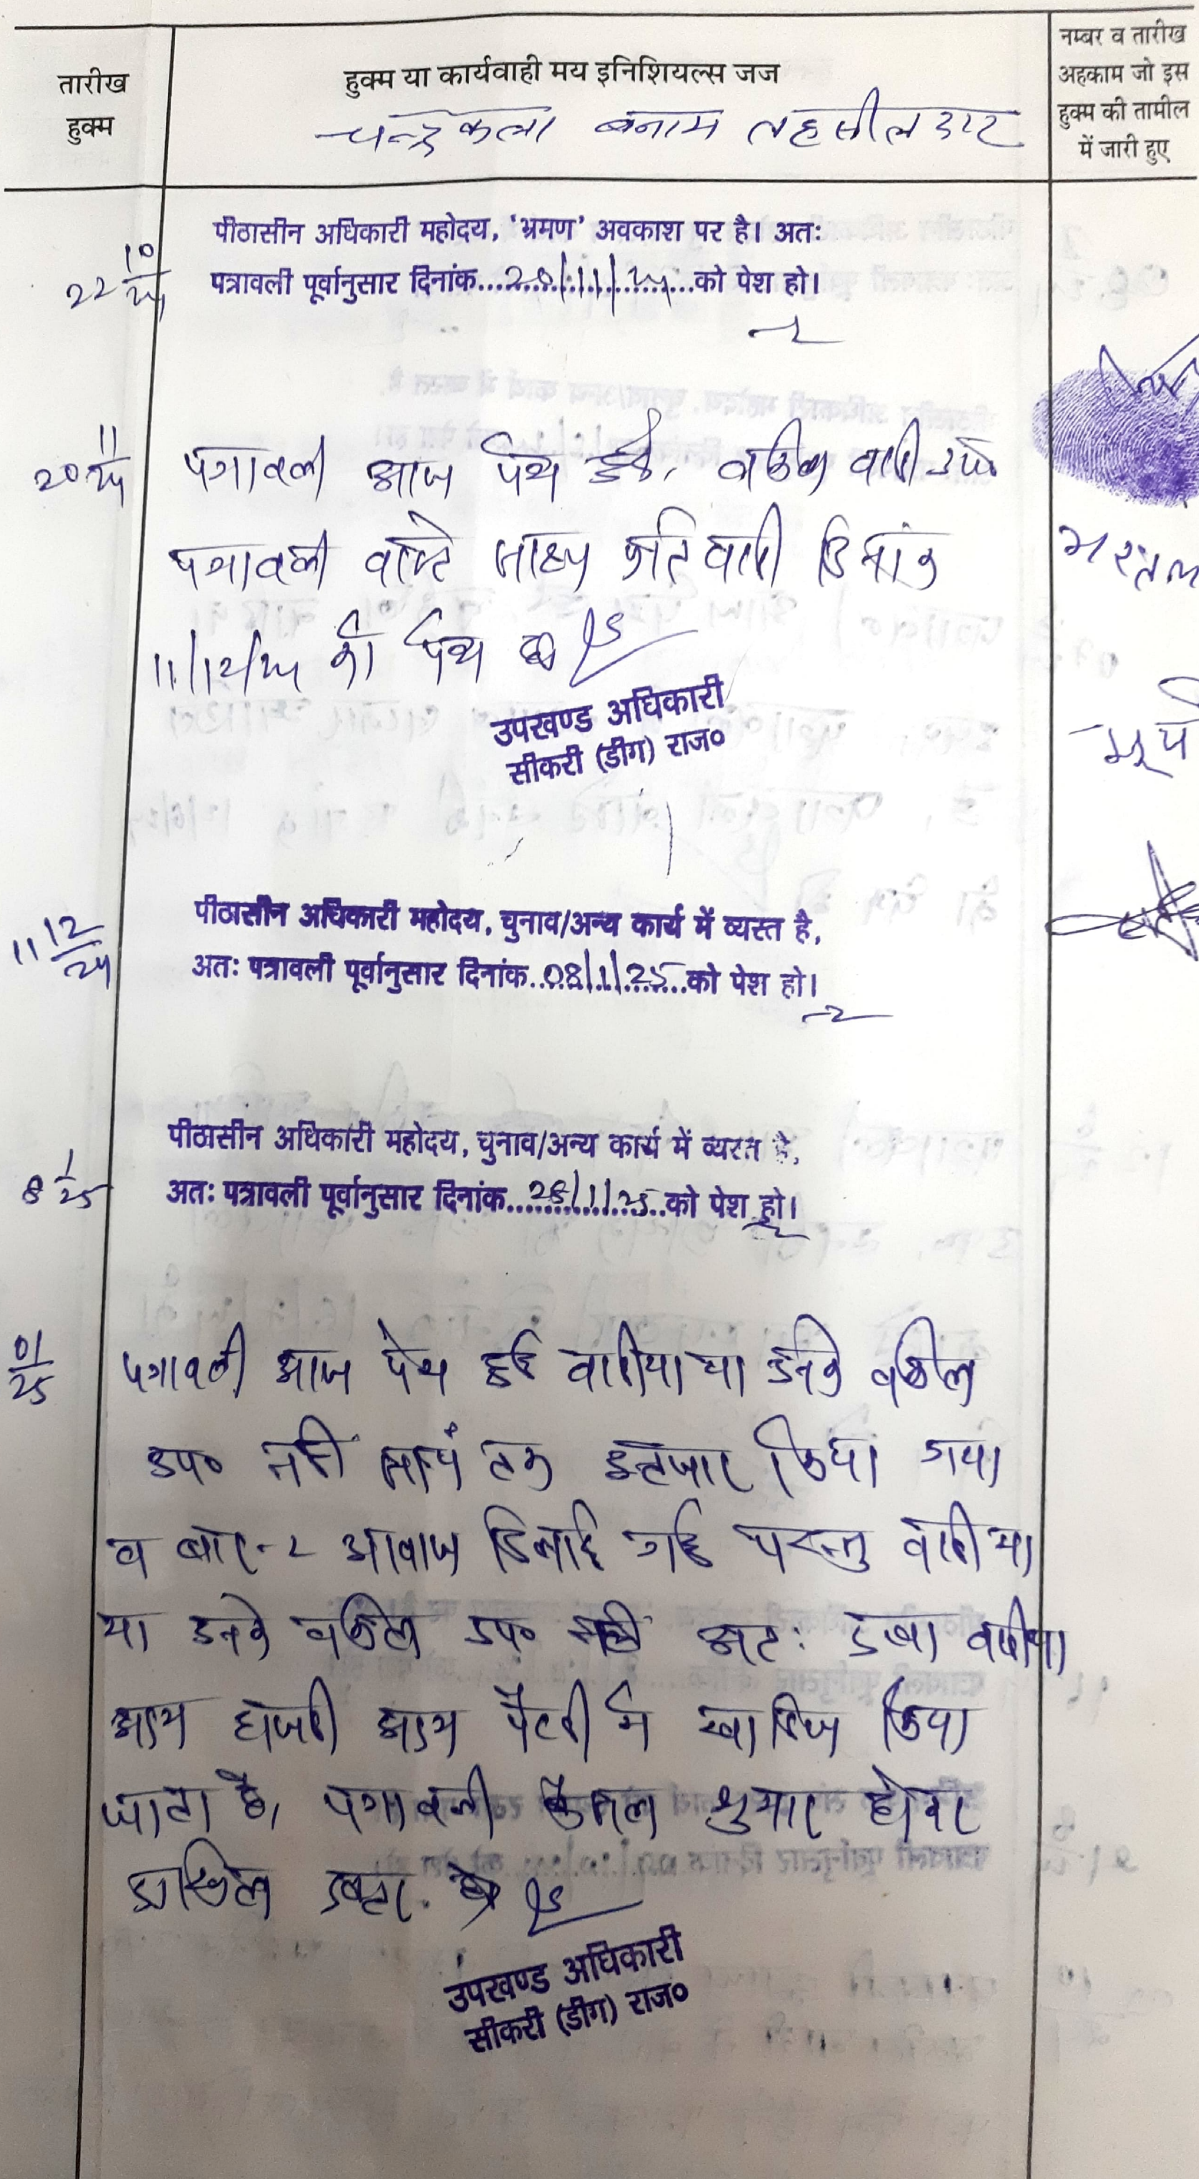 तारीख
हुक्म
हुक्म या कार्यवाही मय इनिशियल्स जज
नम्बर व तारीख
अहकाम जो इस
हुक्म की तामील
में जारी हुए
चन्द्रकला बनाम तहसीलदार
22 10/24
पीठासीन अधिकारी महोदय, 'भ्रमण' अवकाश पर है। अतः
पत्रावली पूर्वानुसार दिनांक...20/11/24...को पेश हो।
20 11/24
पत्रावली आज पेश हुई, वकील वादी उप०
पत्रावली वास्ते साक्ष्य प्रतिवादी दिनांक
11/12/24 को पेश हो
उपखण्ड अधिकारी
सीकरी (डीग) राज०
11 12/24
पीठासीन अधिकारी महोदय, चुनाव/अन्य कार्य में व्यस्त है,
अतः पत्रावली पूर्वानुसार दिनांक...08/1/25...को पेश हो।
8 1/25
पीठासीन अधिकारी महोदय, चुनाव/अन्य कार्य में व्यस्त है,
अतः पत्रावली पूर्वानुसार दिनांक...28/1/25...को पेश हो।
01/25
पत्रावली आज पेश हुई वादीया या उनके वकील
उप० नही सायं तक इन्तजार किया गया
व बार-2 आवाज दिलाई गई परन्तु वादीया
या उनके वकील उप० नही अतः दावा वादीया
अदम हाजरी अदम पैरवी में खारिज किया
जाता है, पत्रावली फैसल शुमार होकर
दाखिल दफ्तर हो
उपखण्ड अधिकारी
सीकरी (डीग) राज०